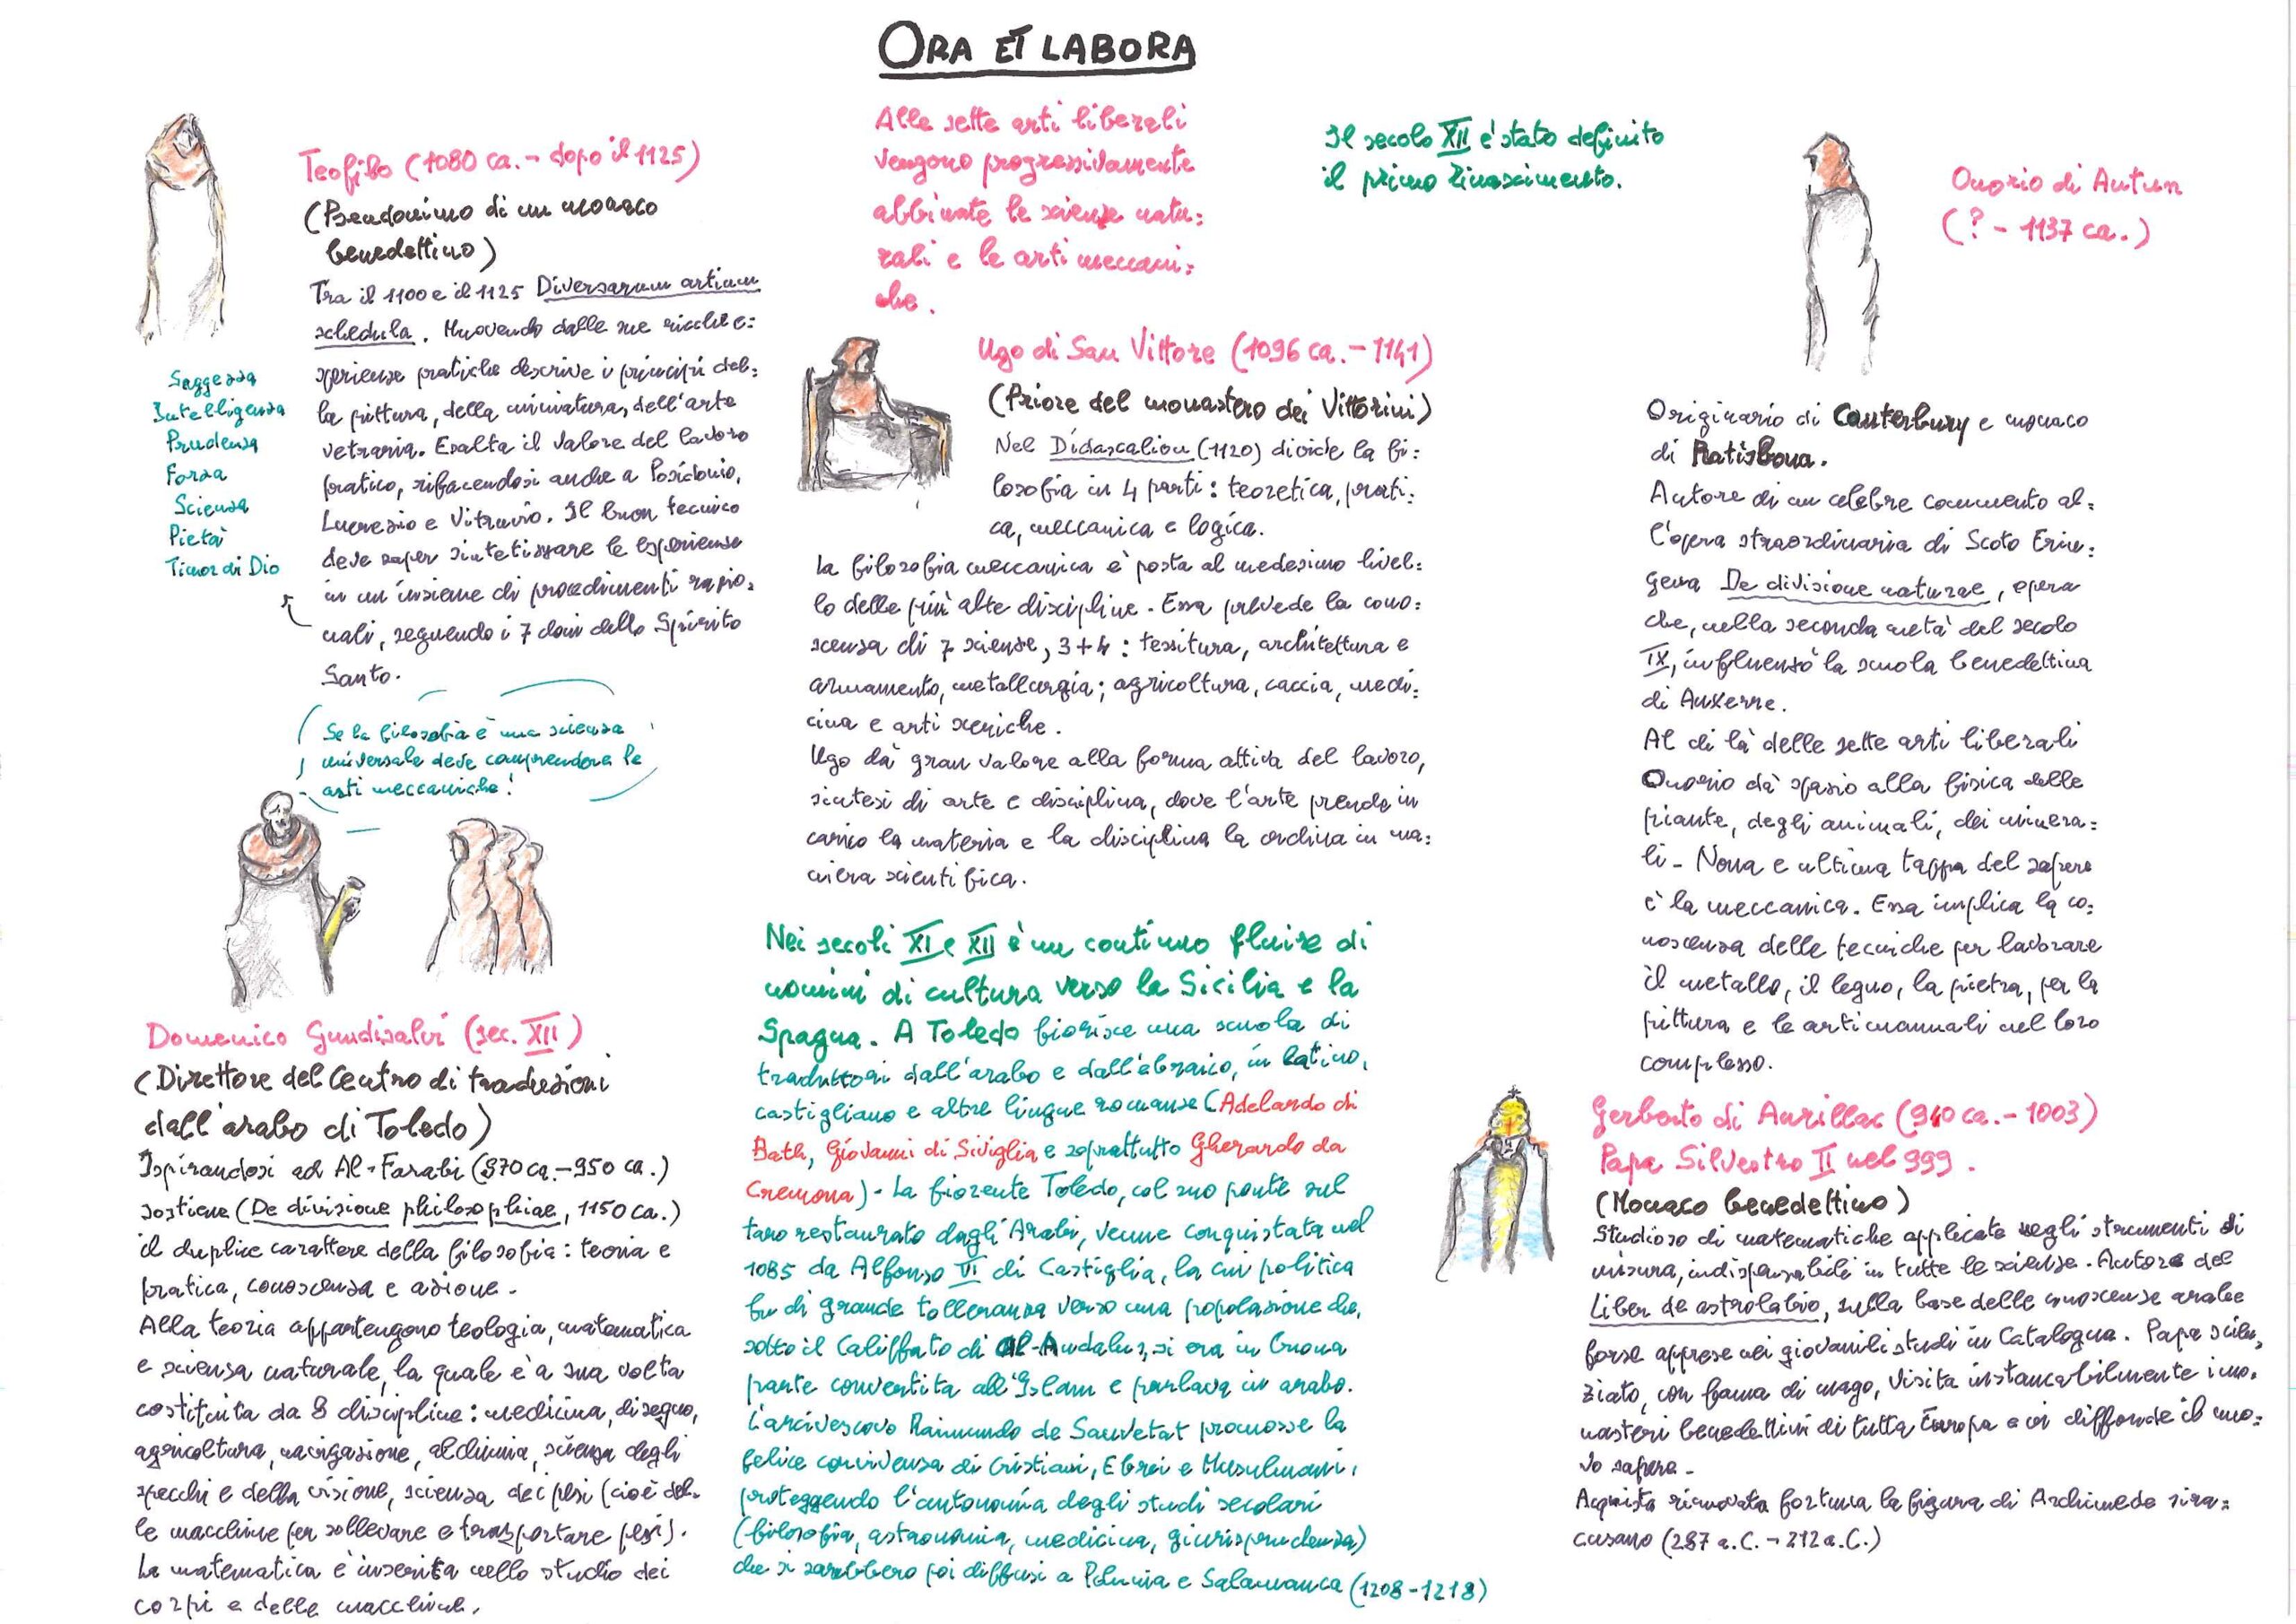 ORA ET LABORA
Teofilo (1080 ca. - dopo il 1125)
(Pseudonimo di un monaco
benedettino)
Tra il 1100 e il 1125 Diversarum artium
schedula. Muovendo dalle sue ricche e=
sperienze pratiche descrive i principi del=
la pittura, della miniatura, dell'arte
vetraria. Esalta il valore del lavoro
pratico, rifacendosi anche a Posidonio,
Lucrezio e Vitruvio. Il buon tecnico
deve saper sintetizzare le esperienze
in un insieme di procedimenti razio=
nali, seguendo i 7 doni dello Spirito
Santo.
Saggezza
Intelligenza
Prudenza
Forza
Scienza
Pietà
Timor di Dio
Se la filosofia è una scienza
universale deve comprendere le
arti meccaniche!
Domenico Gundisalvi (sec. XII)
(Direttore del Centro di traduzioni
dall'arabo di Toledo)
Ispirandosi ad Al-Farabi (870 ca.-950 ca.)
sostiene (De divisione philosophiae, 1150 ca.)
il duplice carattere della filosofia: teoria e
pratica, conoscenza e azione.
Alla teoria appartengono teologia, matematica
e scienza naturale, la quale è a sua volta
costituita da 8 discipline: medicina, disegno,
agricoltura, navigazione, alchimia, scienza degli
specchi e della visione, scienza dei pesi (cioè del=
le macchine per sollevare e trasportare pesi).
La matematica è inserita nello studio dei
corpi e delle macchine.
Alle sette arti liberali
vengono progressivamente
abbinate le scienze natu=
rali e le arti meccani=
che.
Ugo di San Vittore (1096 ca.-1141)
(Priore del monastero dei Vittorini)
Nel Didascalion (1120) divide la fi=
losofia in 4 parti: teoretica, prati=
ca, meccanica e logica.
La filosofia meccanica è posta al medesimo livel=
lo delle più alte discipline. Essa prevede la cono=
scenza di 7 scienze, 3+4: tessitura, architettura e
armamento, metallurgia; agricoltura, caccia, medi=
cina e arti sceniche.
Ugo dà gran valore alla forma attiva del lavoro,
sintesi di arte e disciplina, dove l'arte prende in
carico la materia e la disciplina la ordina in ma=
niera scientifica.
Nei secoli XI e XII è un continuo fluire di
uomini di cultura verso la Sicilia e la
Spagna. A Toledo fiorisce una scuola di
traduttori dall'arabo e dall'ebraico, in latino,
castigliano e altre lingue romanze (Adelardo di
Bath, Giovanni di Siviglia e soprattutto Gherardo da
Cremona). La fiorente Toledo, col suo ponte sul
Tago restaurato dagli Arabi, venne conquistata nel
1085 da Alfonso VI di Castiglia, la cui politica
fu di grande tolleranza verso una popolazione che,
sotto il Califfato di Al-Andalus, si era in buona
parte convertita all'Islam e parlava in arabo.
L'arcivescovo Raimundo de Sauvetat promosse la
felice convivenza di Cristiani, Ebrei e Musulmani,
proteggendo l'autonomia degli studi secolari
(filosofia, astronomia, medicina, giurisprudenza)
che si sarebbero poi diffusi a Palencia e Salamanca (1208-1218)
Il secolo XII è stato definito
il primo Rinascimento.
Onorio di Autun
(? - 1137 ca.)
Originario di Canterbury e monaco
di Ratisbona.
Autore di un celebre commento al=
l'opera straordinaria di Scoto Eriu=
gena De divisione naturae, opera
che, nella seconda metà del secolo
IX, influenzò la scuola benedettina
di Auxerre.
Al di là delle sette arti liberali
Onorio dà spazio alla fisica delle
piante, degli animali, dei minera=
li. Nona e ultima tappa del sapere
è la meccanica. Essa implica la co=
noscenza delle tecniche per lavorare
il metallo, il legno, la pietra, per la
pittura e le arti manuali nel loro
complesso.
Gerberto di Aurillac (940 ca.-1003)
Papa Silvestro II nel 999.
(Monaco benedettino)
Studioso di matematiche applicate negli strumenti di
misura, indispensabili in tutte le scienze. Autore del
Liber de astrolabio, sulla base delle conoscenze arabe
forse apprese nei giovanili studi in Catalogna. Papa scien=
ziato, con fama di mago, visita instancabilmente i mo=
nasteri benedettini di tutta Europa e vi diffonde il nuo=
vo sapere.
Acquista rinnovata fortuna la figura di Archimede sira=
cusano (287 a.C. - 212 a.C.)